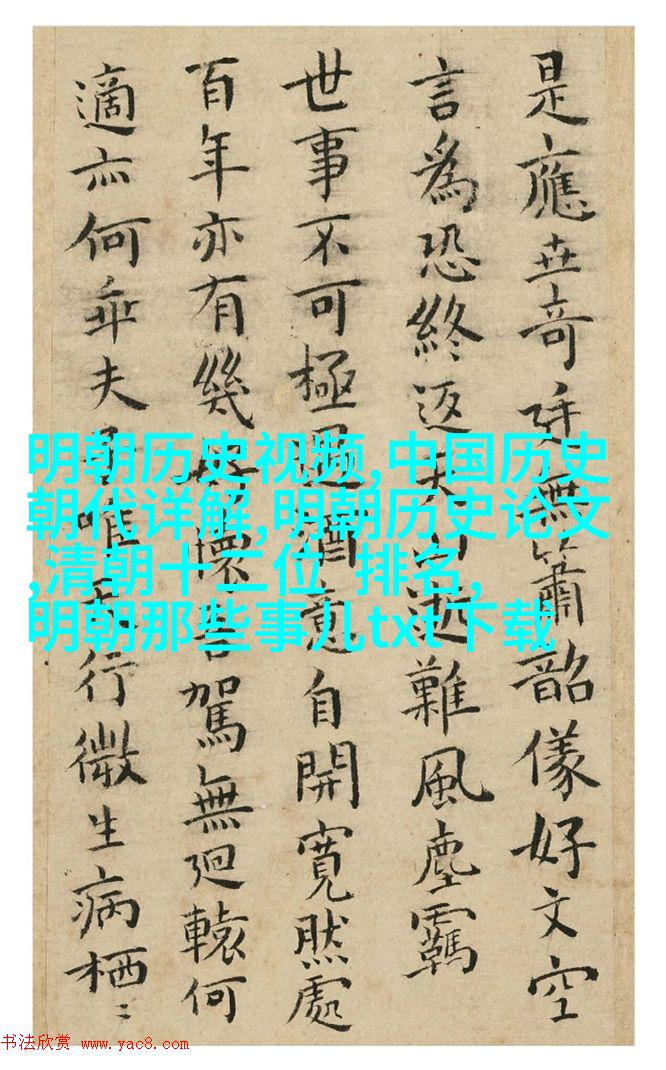 是應世奇無簫韶儀好文空
言爲恐終返難風塵羈
世事不可極酒意自開寬然處
百年亦有幾懷言駕無迴轅何
適亦何乖夫行微生病栖〻
明朝历史视频,中国历史
朝代详解,明朝历史论文
,清朝十二位 排名,
明朝那些事儿txt下载
书法欣赏 www.yac8.com